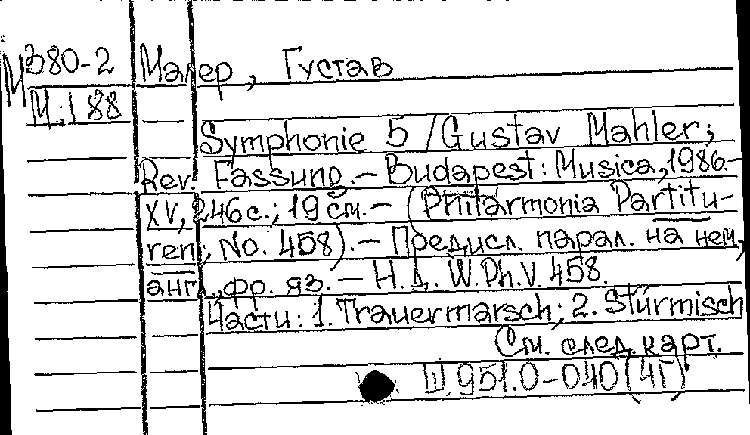 М380-2 Малер, Густав
М.188
Symphonie 5 / Gustav Mahler;
Rev. Fassung. — Budapest: Musica, 1986.—
XV, 246 с.; 19 см. — (Philarmonia Partitu-
ren; No. 458). — Предисл. парал. на нем.,
англ., фр. яз. — Н.д. W.Ph.V. 458.
Части: 1. Trauermarsch; 2. Stürmisch
См. след. карт.
Ш 951.0-040(4Г)